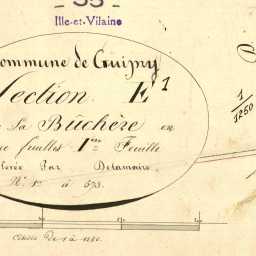 35
Ille-et-Vilaine
Commune de Guipry
Section E1
La Bûchère en
feuilles 1ere Feuille
Par Delamaire
Nos 1er à 573.
1
1250
Echelle de 1 à 1250.